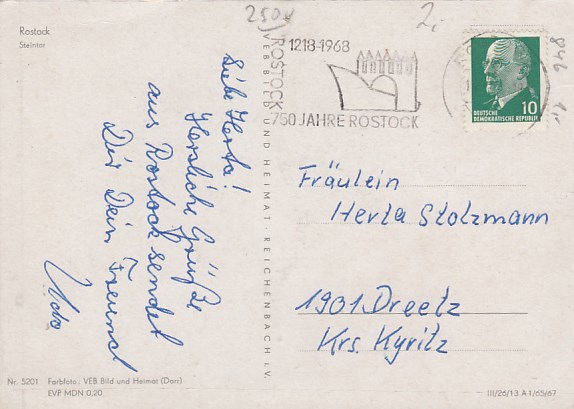 Rostock
Steintor
Liebe Herta!
Herzliche Grüße
aus Rostock sendet
Dir Dein Freund
Udo
Nr. 5201 Farbfoto: VEB Bild und Heimat (Darr)
EVP MDN 0,20
VEB BILD UND HEIMAT · REICHENBACH i. V.
250
2,-
ROSTOCK
1218-1968
750 JAHRE ROSTOCK
10
DEUTSCHE
DEMOKRATISCHE REPUBLIK
Fräulein
Herta Stolzmann
1901 Dreetz
Krs. Kyritz
III/26/13 A 1/65/67